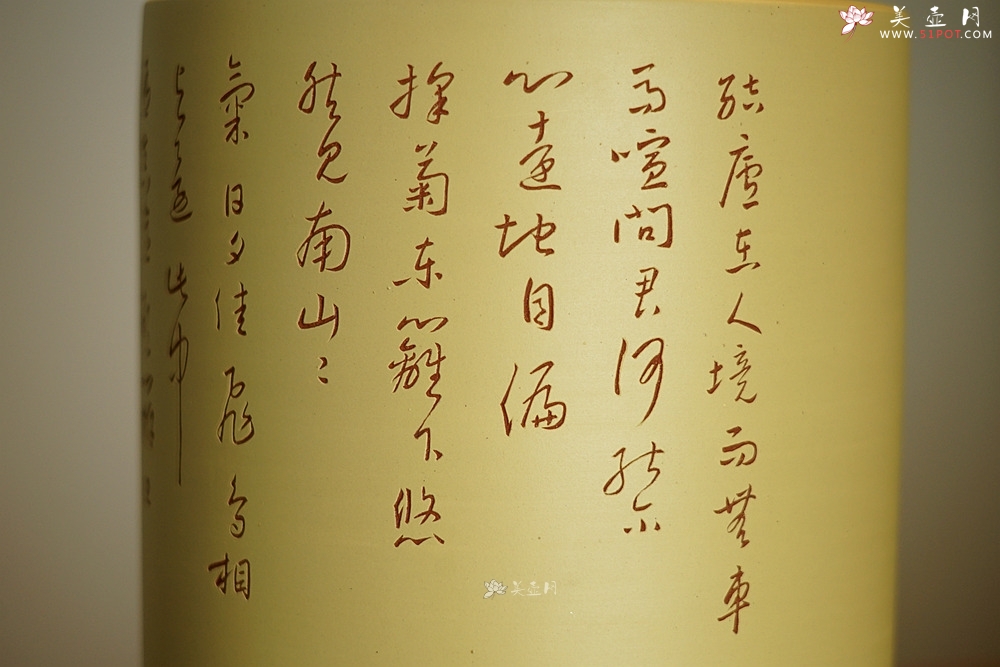 結廬在人境而無車
馬喧問君何能尔
心遠地自偏
採菊東籬下悠
然見南山〻
氣日夕佳飛鳥相
與還此中
美壶网
WWW.51POT.COM
美壶网